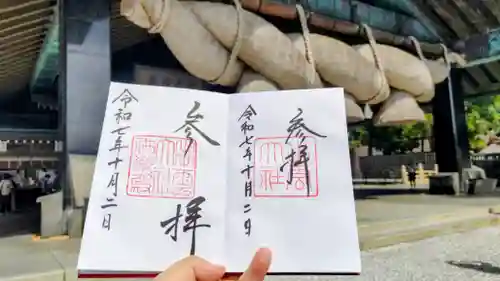 参拝
出雲
大社
令和七年十月二日
参拝
令和七年十月二日